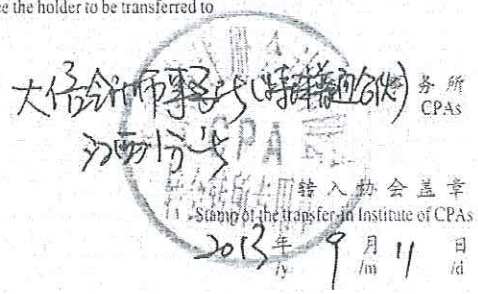 ce the holder to be transferred to
大信会计师事务所(特殊普通合伙) 务所
CPAs
江西分所
CPA
转入协会盖章
Stamp of the transfer-in Institute of CPAs
2013年 9月 11日
/y /m /d